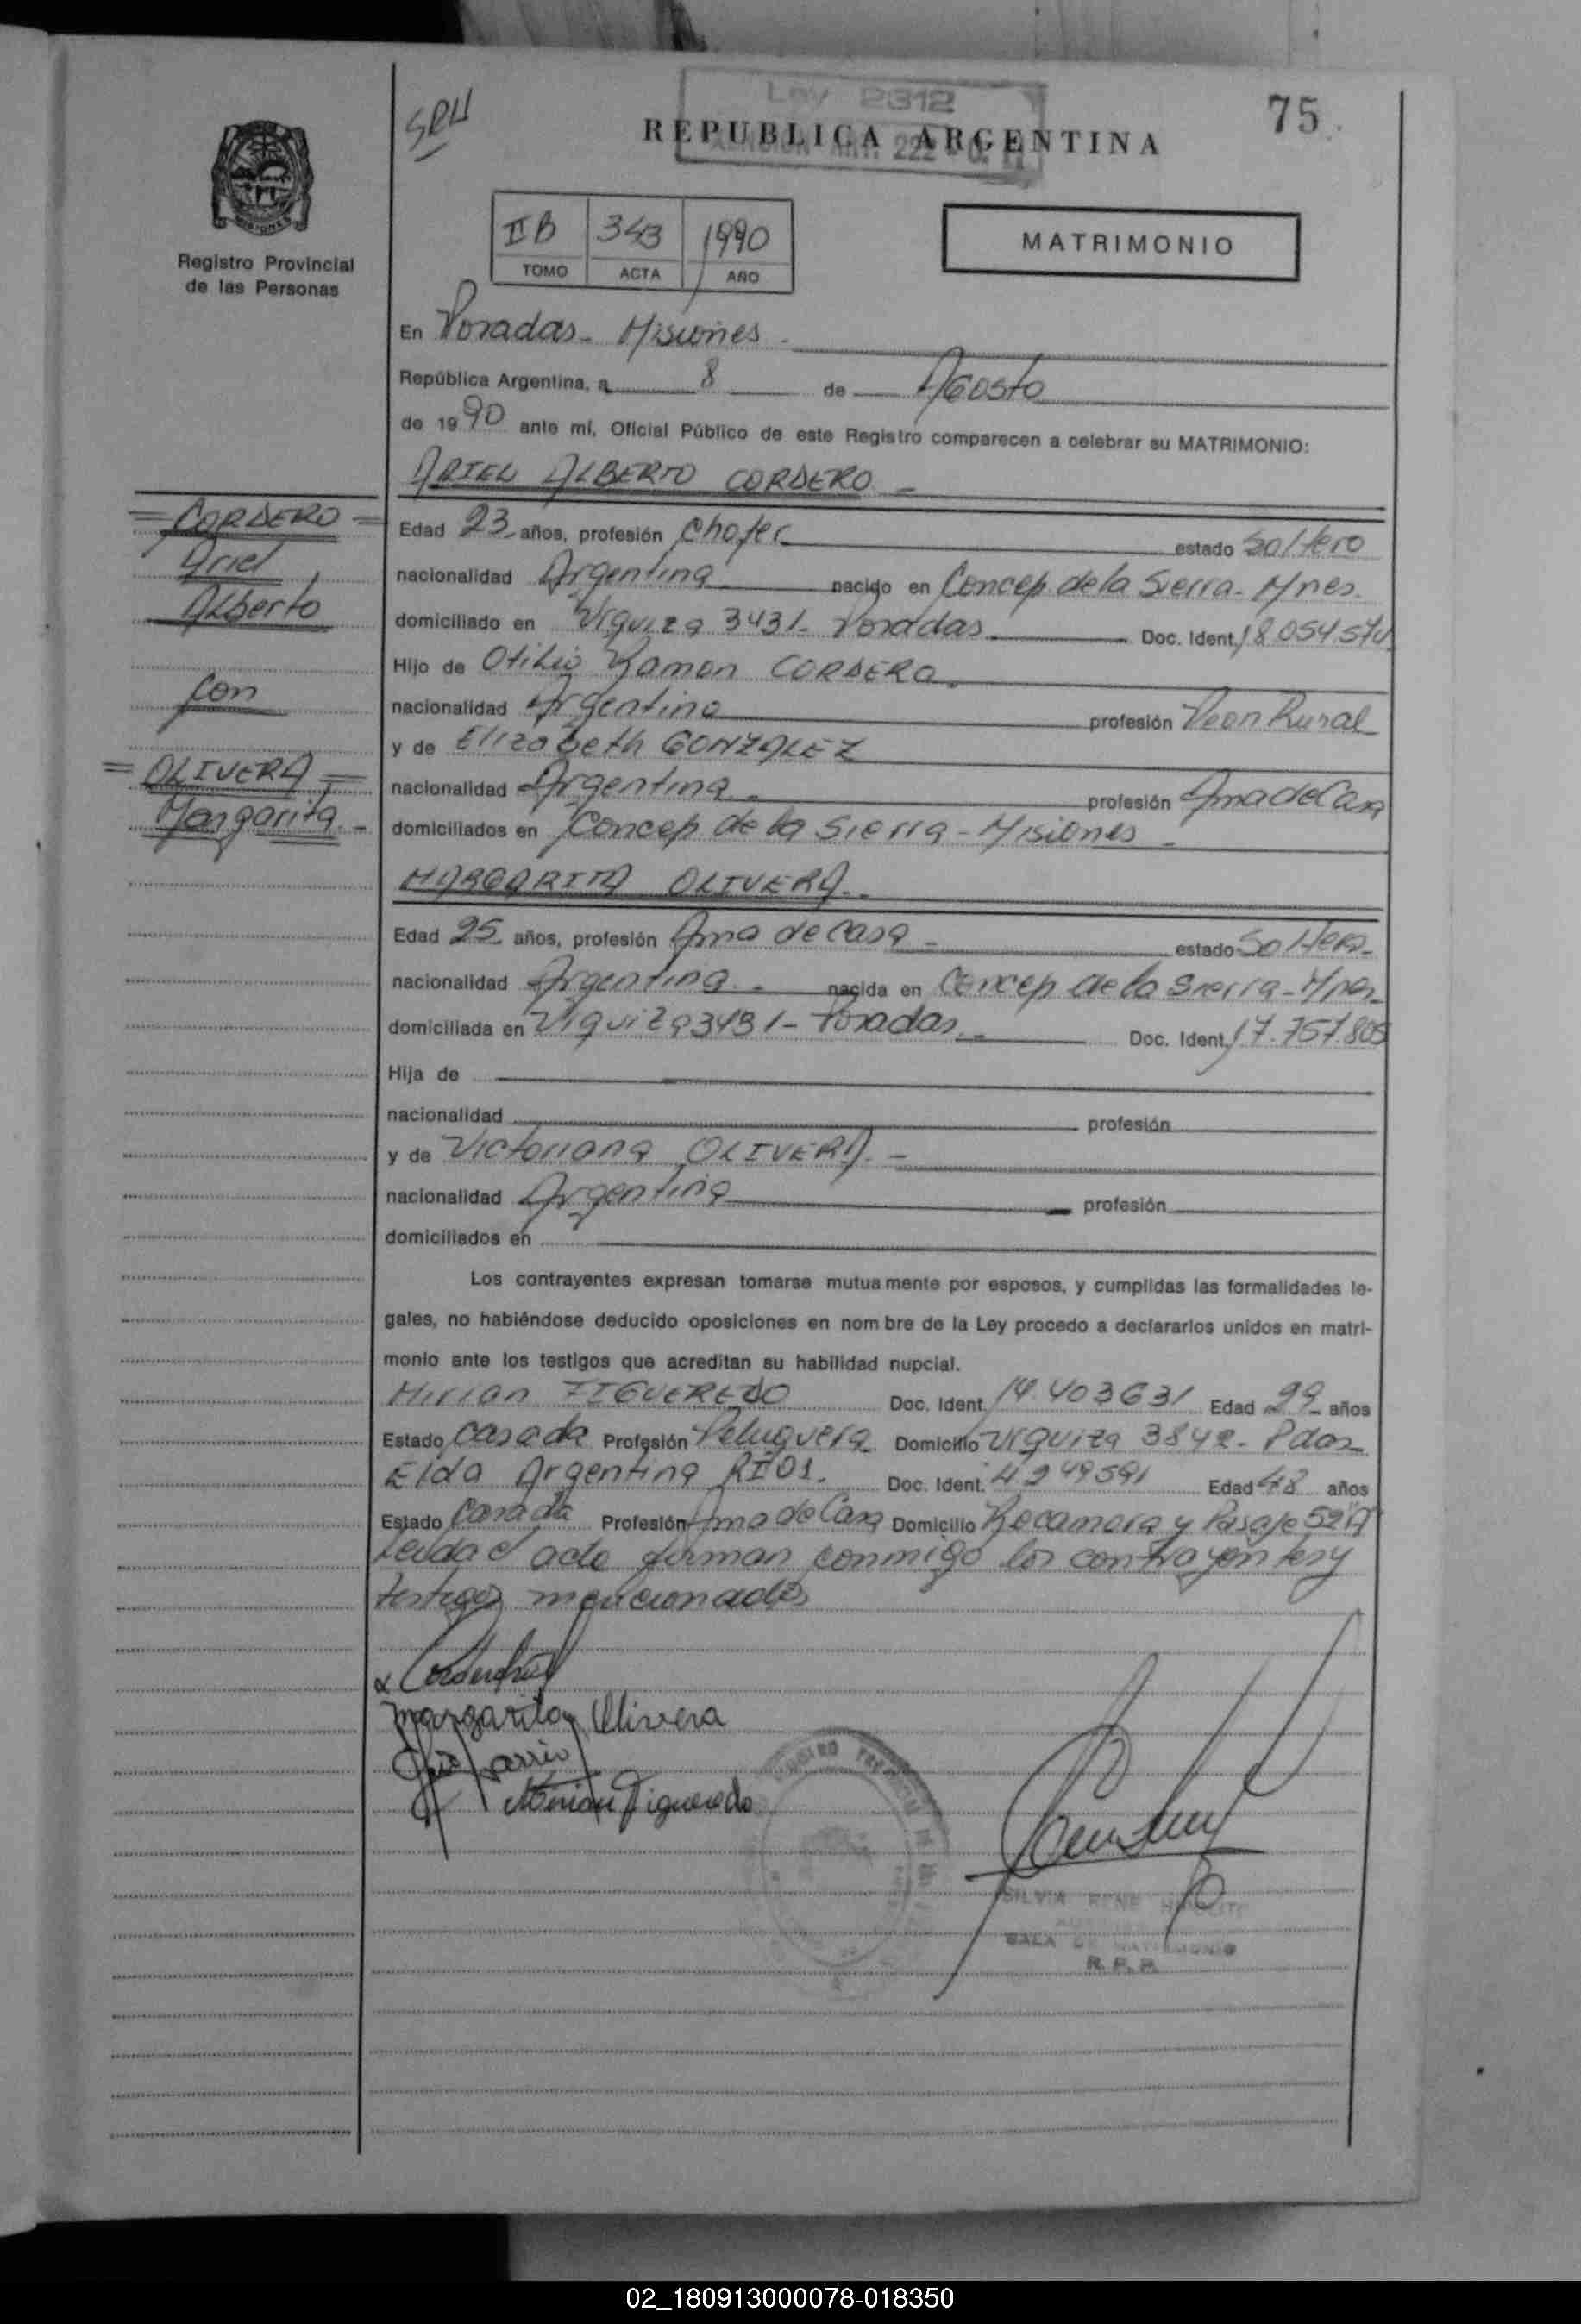 Ley 2312
75
REPUBLICA ARGENTINA
IIB 343 1990
TOMO ACTA AÑO
MATRIMONIO
Registro Provincial
de las Personas
En Posadas - Misiones -
República Argentina, a 8 de Agosto
de 1990 ante mí, Oficial Público de este Registro comparecen a celebrar su MATRIMONIO:
ARIEL ALBERTO CORDERO -
= CORDERO =
Ariel
Alberto
con
= OLIVERA =
Margarita -
Edad 23 años, profesión Chofer estado Soltero
nacionalidad Argentina nacido en Concep de la Sierra - Mnes.
domiciliado en Urquiza 3431 - Posadas Doc. Ident. 18.054.570
Hijo de Otilio Ramon CORDERO
nacionalidad Argentino profesión Peon Rural
y de Elizabeth GONZALEZ
nacionalidad Argentina profesión Ama de Casa
domiciliados en Concep de la Sierra - Misiones -
MARGARITA OLIVERA
Edad 25 años, profesión Ama de casa - estado Soltera
nacionalidad Argentina - nacida en Concep de la Sierra - Mnes
domiciliada en Urquiza 3431 - Posadas - Doc. Ident. 17.757.805
Hija de
nacionalidad profesión
y de Victoriana OLIVERA -
nacionalidad Argentina profesión
domiciliados en
Los contrayentes expresan tomarse mutuamente por esposos, y cumplidas las formalidades le-
gales, no habiéndose deducido oposiciones en nombre de la Ley procedo a declararlos unidos en matri-
monio ante los testigos que acreditan su habilidad nupcial.
Mirian FIGUEREDO Doc. Ident. 14.403631 Edad 29 años
Estado Casada Profesión Peluquera Domicilio Urquiza 3842 - Pdas
Elda Argentina RIOS. Doc. Ident. 4.249591 Edad 48 años
Estado Casada Profesión Ama de Casa Domicilio Rocamora y Pasaje 52 "A"
Leida el acta firman conmigo los contrayentes y
testigos mencionados
Margarita Olivera
Mirian Figueredo
SILVIA RENE
SALA DE MATRIMONIO
R. P. P.
02_180913000078-018350